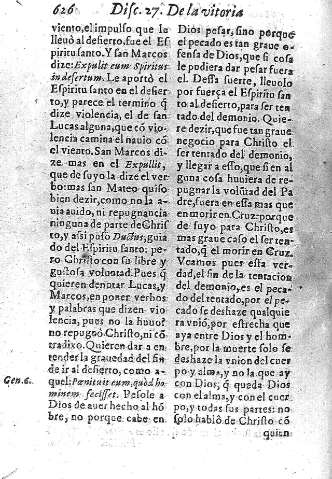 626 Disc. 27. De la vitoria
viento, el impulso que la
lleuó al desierto, fue el Es
piritu santo. Y san Marcos
dize: Expulit eum Spiritus
in desertum. Le aportó el
Espiritu santo en el desier
to, y parece el termino q̃
dize violencia, el de san
Lucas alguna, que cõ vio-
lencia camina el nauio cõ
el viento. San Marcos di-
ze mas en el Expullit,
que de suyo la dize el ver
bo: mas san Mateo quiso
bien dezir, como no la a-
uia auido, ni repugnancia
ninguna de parte de Chris
to, y assi puso Ductus, guia
do del Espiritu Santo: pe-
ro Christo con su libre y
gustosa voluntad. Pues q̃
quieren denotar Lucas, y
Marcos, en poner verbos
y palabras que dizen vio
lencia, pues no la huuo?
no repugnó Christo, ni cõ
tradixo. Quieren dar a en-
tender la grauedad del fin
de ir al desierto, como a-
quel: Pœnituit eum, quod ho
minem fecisset. Pesole a
Dios de auer hecho al hõ
bre, no porque cabe en
Gen. 6.
Dios pesar, sino porque
el pecado es tan graue o-
fensa de Dios, que si cosa
le podiera dar pesar fuera
el. Dessa suerte, lleuolo
por fuerça el Espiritu san-
to al desierto, para ser ten
tado del demonio. Quie-
re dezir, que fue tan graue
negocio para Christo el
ser tentado del demonio,
y llegar a esso, que si en al
guna cosa huuiera de re-
pugnar la volũtad del Pa
dre, fuera en essa mas que
en morir en Cruz: porque
de suyo para Christo, es
mas graue caso el ser ten-
tado, q̃ el morir en Cruz.
Veamos pues esta ver-
dad, el fin de la tentacion
del demonio, es el peca-
do del tentado, por el pe-
cado se deshaze qualquie
ra vniõ, por estrecha que
aya entre Dios y el hom-
bre, por la muerte solo se
deshaze la vnion del cuer
po y alma, y no la que ay
con Dios, q̃ queda Dios
con el alma, y con el cuer
po, y todas sus partes: no
solo habló de Christo cõ
quien